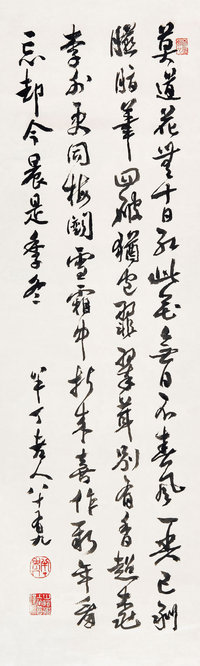 莫道花無十日紅此花無日不春風一尖已剝
臙脂筆四破猶包翡翠茸別有香超桃
李外更同梅鬪雪霜中折來喜作新年看
忘却今晨是季冬
半丁老人八十有九